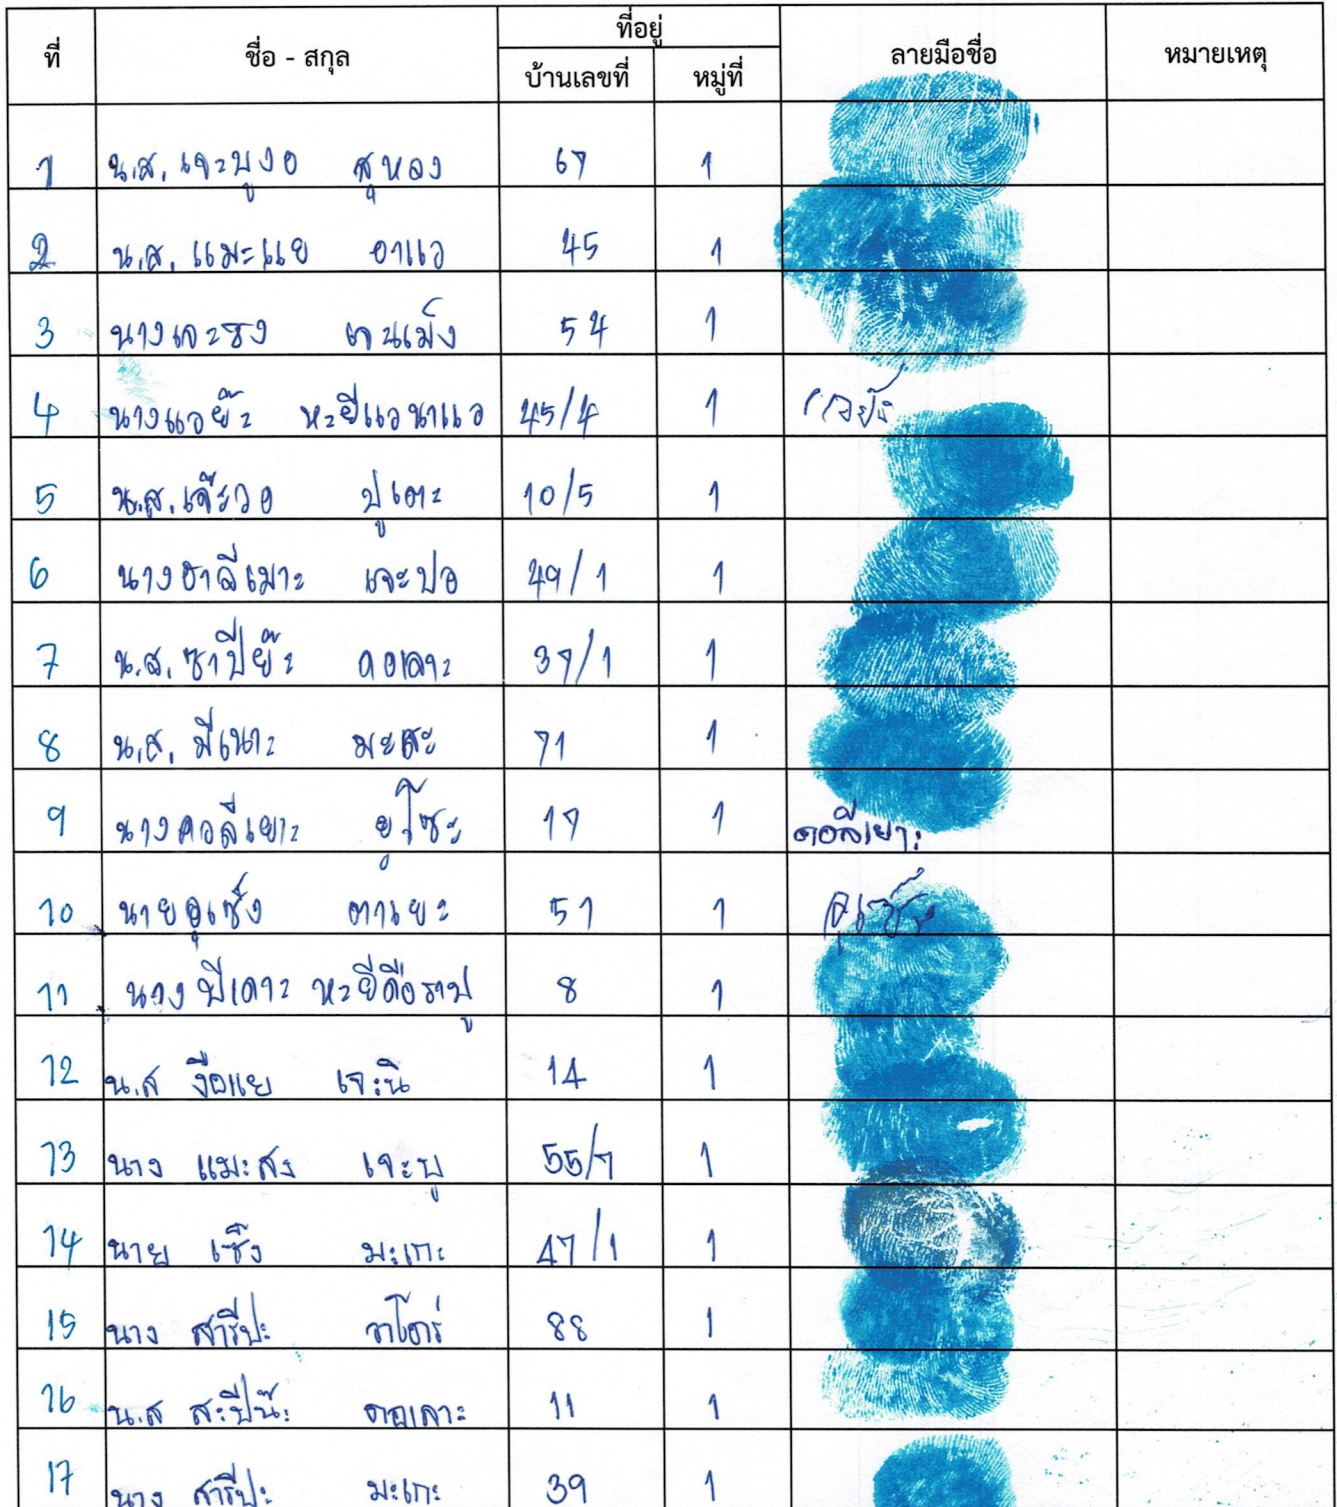 ที่ ชื่อ - สกุล ที่อยู่ ลายมือชื่อ หมายเหตุ
บ้านเลขที่ หมู่ที่
1 น.ส. เจะบูงอ สุหลง 67 1
2 น.ส. แมะแย อาแว 45 1
3 นางเจะซง เจนเม็ง 54 1
4 นางแอยั๊ะ หะยีแวนาแว 45/4 1
5 น.ส. เจ๊ะวอ ปูเตะ 10/5 1
6 นางฮาลีเมาะ เจะปอ 49/1 1
7 น.ส. ซาปียั๊ะ ดอเลาะ 37/1 1
8 น.ส. มีเนาะ มะสะ 71 1
9 นางคอลีเยาะ ยูโซะ 17 1 คอลีเยาะ
10 นายอุเซ็ง ตาเยะ 51 1 อุเซ็ง
11 นาง บีเดาะ หะยีดือราปู 8 1
12 น.ส งือแย เจะนิ 14 1
13 นาง แมะสง เจะบู 55/7 1
14 นาย เซ็ง มะเกะ 47/1 1
15 นาง สารีปะ วาโดร์ 88 1
16 น.ส สะปีน๊ะ ดอเลาะ 11 1
17 นาง สารีปะ มะเกะ 39 1